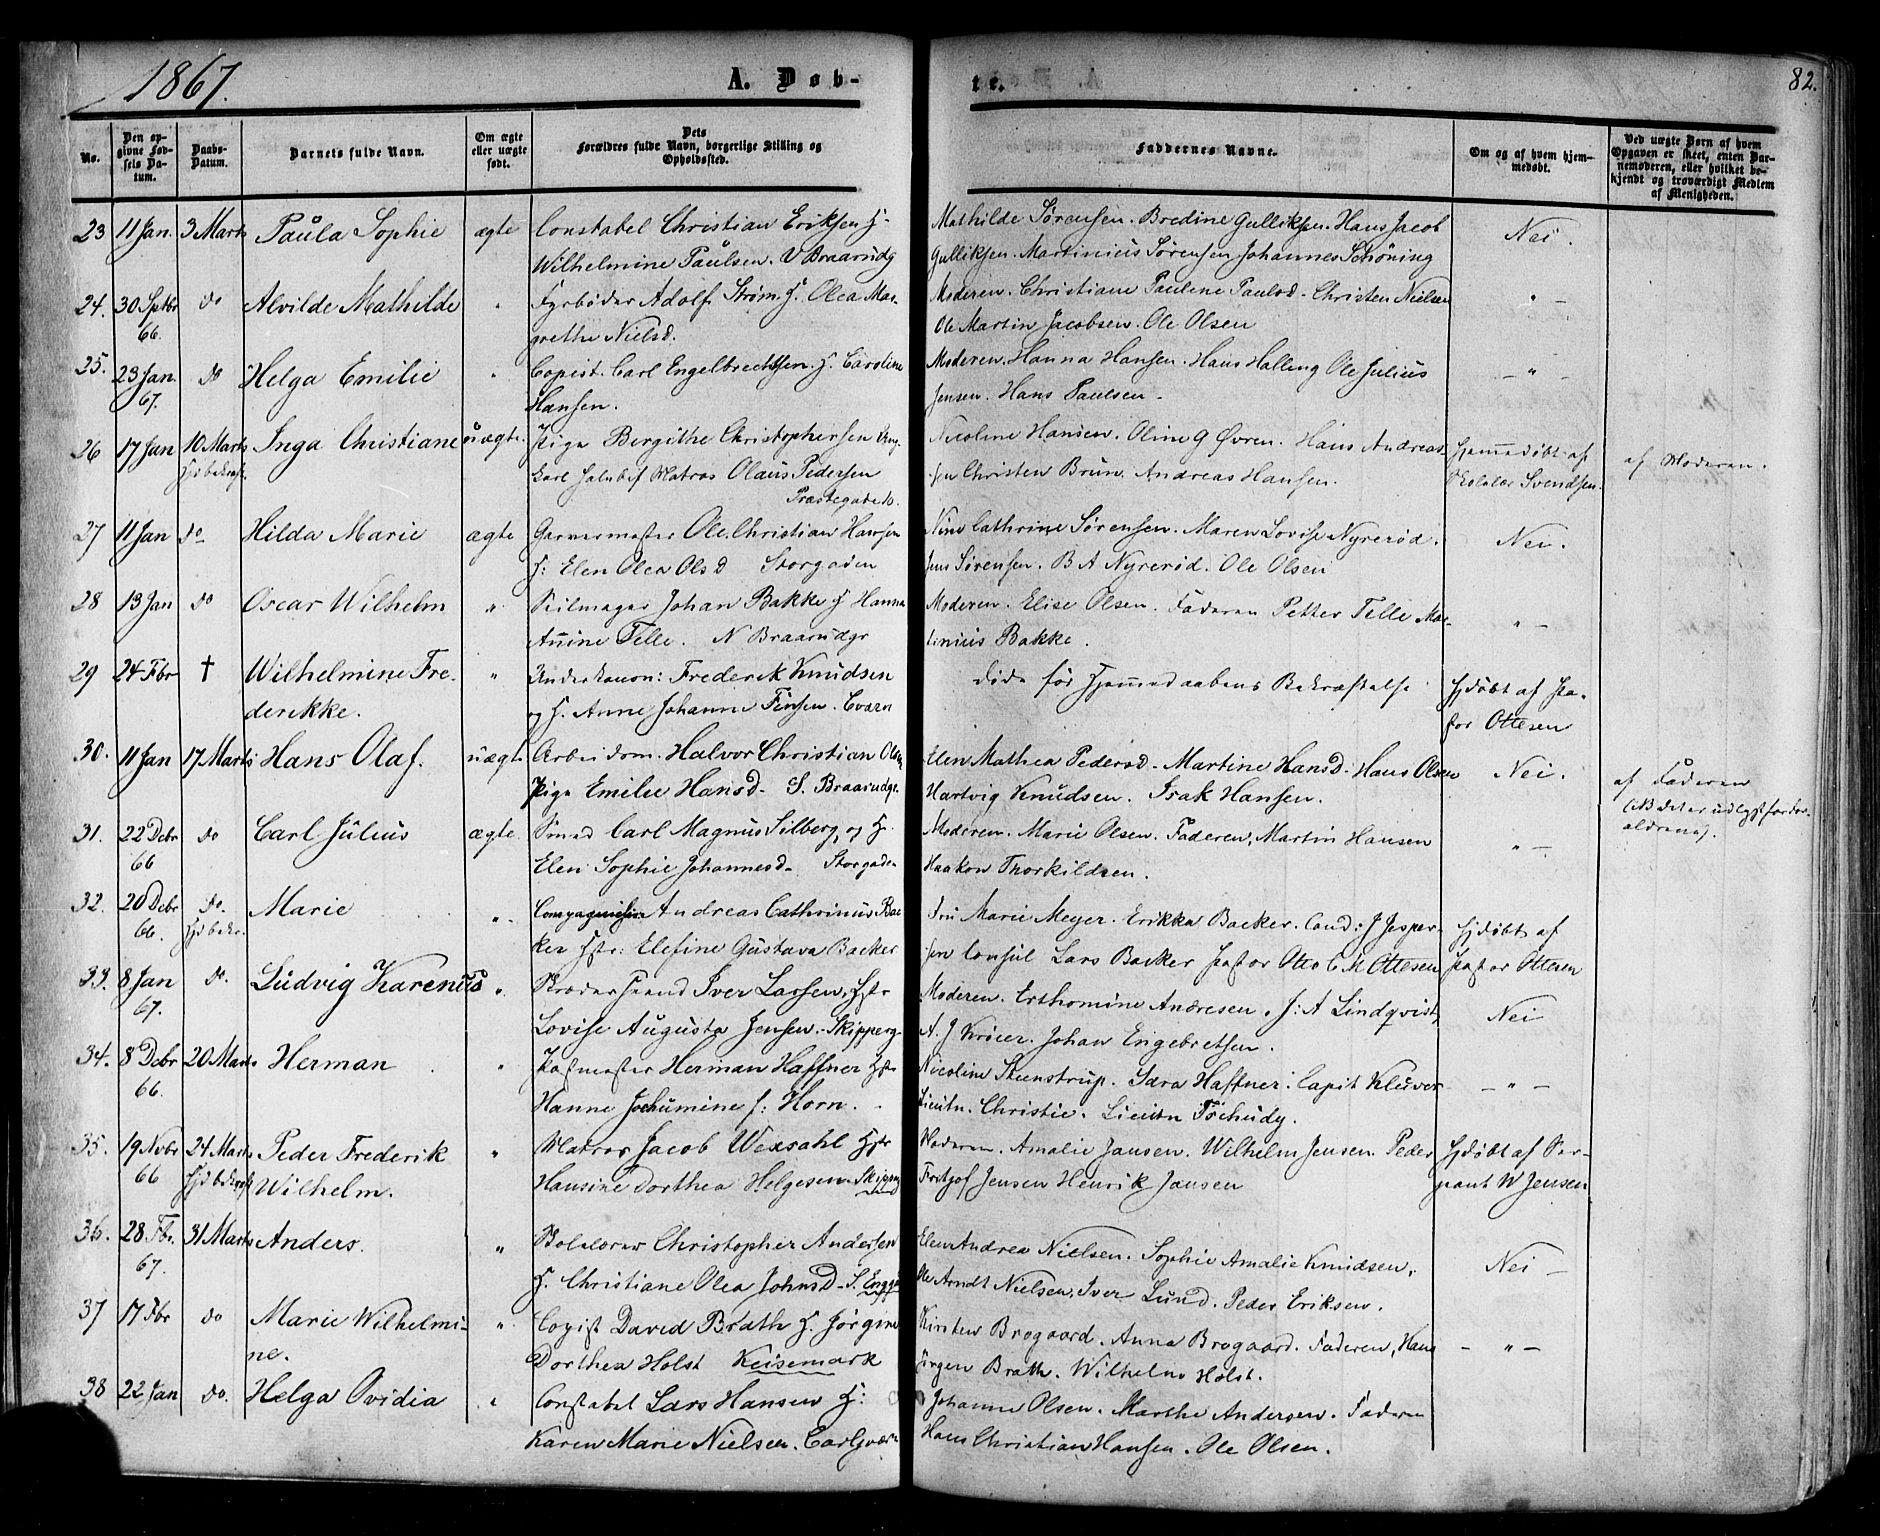 1867.
A. Døb-
te.
82.
No.
Den op-
givne Fød-
sels Da-
tum.
Daabs-
Datum.
Barnets fulde Navn.
Om ægte
eller uægte
født.
Dets
Forældres fulde Navn, borgerlige Stilling og
Opholdssted.
Faddernes Navne.
Om og af hvem hjem-
medøbt.
Ved uægte Børn af hvem
Opgaven er skeet, enten Bar-
nemoderen, eller hvilket be-
kjendt og troværdigt Medlem
af Menigheden.
23 11 Jan. 3 Marts Paula Sophie ægte Constabel Christian Eriksen H. Mathilde Sørensen. Bredine Gulliksen. Hans Jacob Nei.
Wilhelmine Paulsen. V Braarudg Gulliksen. Martinius Sørensen Johannes Schöning
24. 30 Sptbr do Alvilde Mathilde " Fyrbøder Adolf Strøm. H. Olea Mar- Moderen. Christiane Paulene Paulsd. Christen Nielsen " -
66. grethe Nielsd. Ole Martin Jacobsen. Ole Olsen
25. 23 Jan. do Helga Emilie " Copist. Carl Engelbrechtsen. H. Caroline Moderen. Hanna Hansen. Hans Halling Ole Julius - " -
67. Hansen. Jensen. Hans Paulsen -
26 17 Jan 10 Marts Inga Christiane uægte. Pige Bergithe Christophersen Ung- Nicoline Hansen. Oline G Øvren. Hans Andreas- Hjemmedøbt af af Moderen.
Hjd bekræft. karl Matros Olaus Pedersen sen Christen Brun. Andreas Hansen. Svendsen.
Præstegaden.
27 11 Jan do Hilda Marie ægte Garvermester Ole Christian Hansen Cathrine Sørensen. Maren Lovise Nyrerød. Nei.
H: Elen Olea Olsd Storgaden Jens Sørensen. B A Nyrerød. Ole Olsen
28 13 Jan do Oscar Wilhelm " Seilmager Johan Bakke H Hanna Moderen. Elise Olsen. Faderen Petter Telle Mar- " -
Anine Telle. N Braarudgr tinius Bakke.
29 24 Fbr † Wilhelmine Fre- " Underkanon: Frederik Knudsen døde før Hjemmedaabens Bekræftelse Hjdøbt af Pa-
derikke. og H. Anne Johanne Finsen. Qværn stor Ottesen
30. 11 Jan 17 Marts Hans Olaf. uægte Arbeidsm. Halvor Christian Olsen Elen Mathea Pedersd. Martine Hansd. Hans Olsen Nei. af Faderen
Pige Emilie Hansd. S. Braarudgr. Hartvig Knudsen. Isak Hansen. (NB det er udlagt for
31. 22 Debr do Carl Julius ægte. Smed Carl Magnus Silberg, og H. Moderen. Marie Olsen. Faderen, Martin Hansen " -
66 Elen Sophie Johannesd. Storgade Haakon Thorkildsen.
32. 20 Debr do. Marie " Andreas Cathrinus Bac- Fru Marie Meyer. Erikka Backer. Cand: J Jesper- Hjdøbt af
66. Hjd bekr. ker Hstr: Elefine Gustava Backer sen Consul Lars Backer Pastor Otto C M Ottesen Pastor Ottesen
33. 8 Jan do. Ludvig Karenius " Skræddersvend Iver Larsen, Hstr Moderen. Erthomine Andresen. J: A Lindqvist, Nei
67. Lovise Augusta Jensen. Skipperg A. J Krøier. Johan Engebretsen.
34. 8 Debr 20 Marts Herman " Postmester Herman Haffner Hstr Nicoline Steenstrup. Sara Haffner. Capit Kluver - " -
66. Hanne Jochumine f: Horn. Lieutn. Christie. Lieutn Tschudy.
35. 19 Novbr 24 Marts Peder Frederik " Matros Jacob Wexsahl Hstr Moderen. Amalie Jansen. Wilhelm Jensen. Peder Hjdøbt af Ser-
66 Hjd bekræft Wilhelm. Hansine Dorthea Helgesen. Skipperg Fritjof Jensen Henrik Jansen geant W Jensen
36. 28 Fbr. 31 Marts Anders. " Christopher Andersen Elen Andrea Nielsen. Sophie Amalie Knudsen. Nei -
67. H. Christiane Olea Johnsd. S. Enggt Ole Arndt Nielsen. Iver Lund. Peder Eriksen.
37 17 Fbr do Marie Wilhelmi- " Copist David Brath H. Jørgine Kirsten Brogaard. Anna Brogaard. Faderen, Hans - " -
ne. Dorthea Holst Keisemark Jørgen Brath. Wilhelm Holst.
38 22 Jan do. Helga Ovidia " Constabel Lars Hansen H: Johanne Olsen. Marthe Andersen. Faderen
Karen Marie Nielsen. Carljværn Hans Christian Hansen. Ole Olsen.